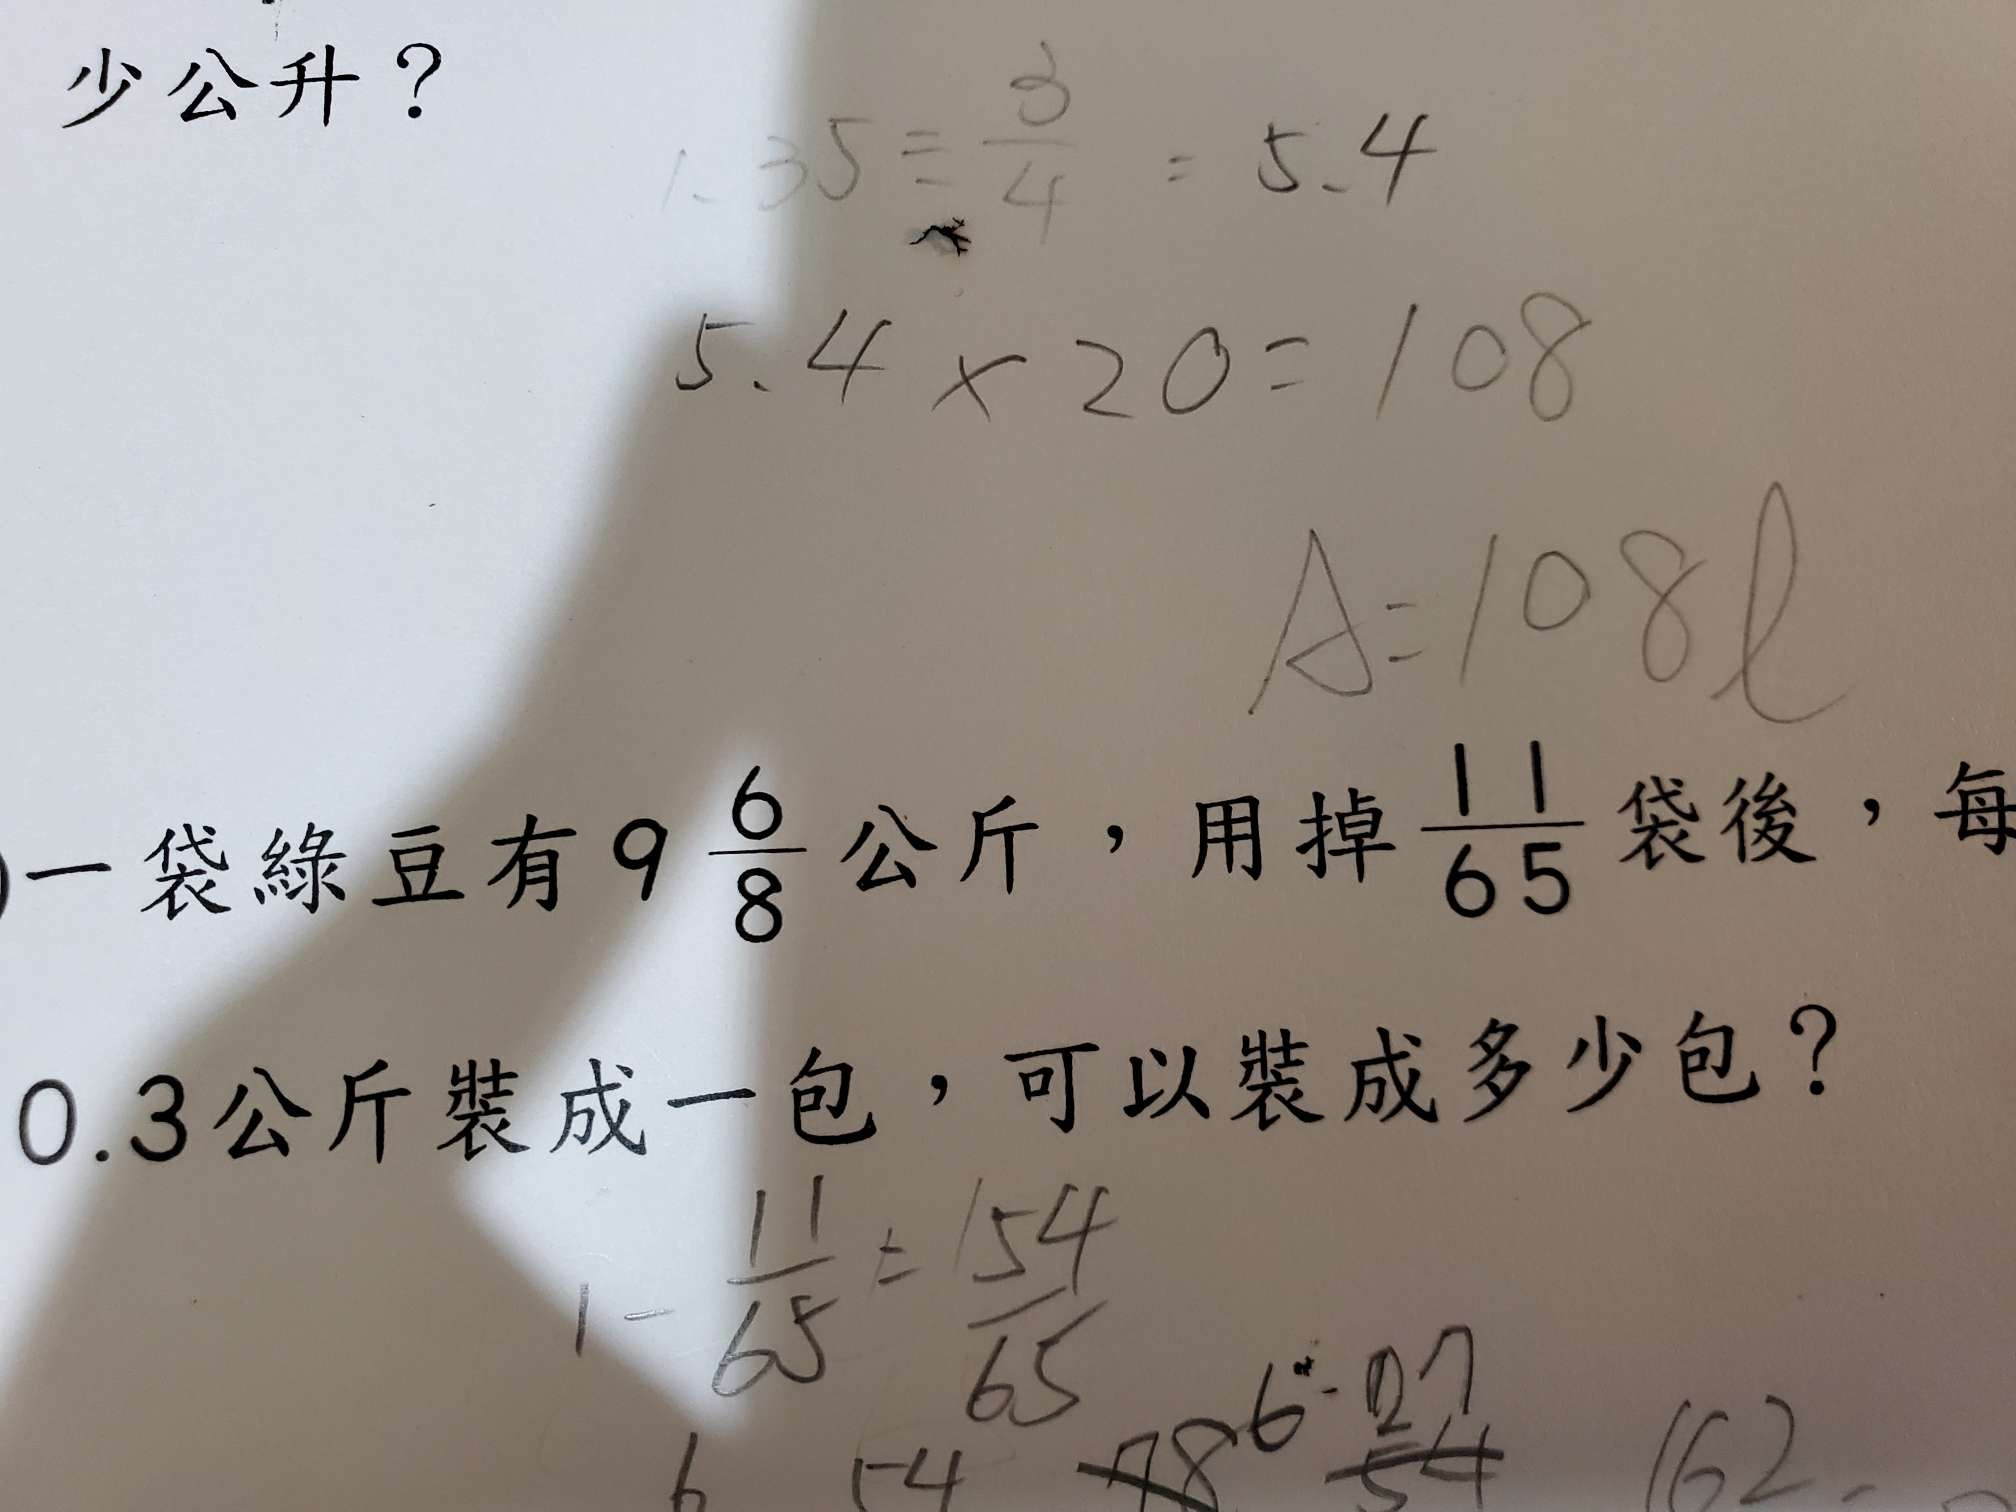 少公升？
1.35 ÷ 3/4 = 5.4
5.4 × 20 = 108
A = 108 l
一袋綠豆有9 6/8 公斤，用掉 11/65 袋後，每
0.3公斤裝成一包，可以裝成多少包？
1 - 11/65 = 154/65
6 54 78 6 27 54 162